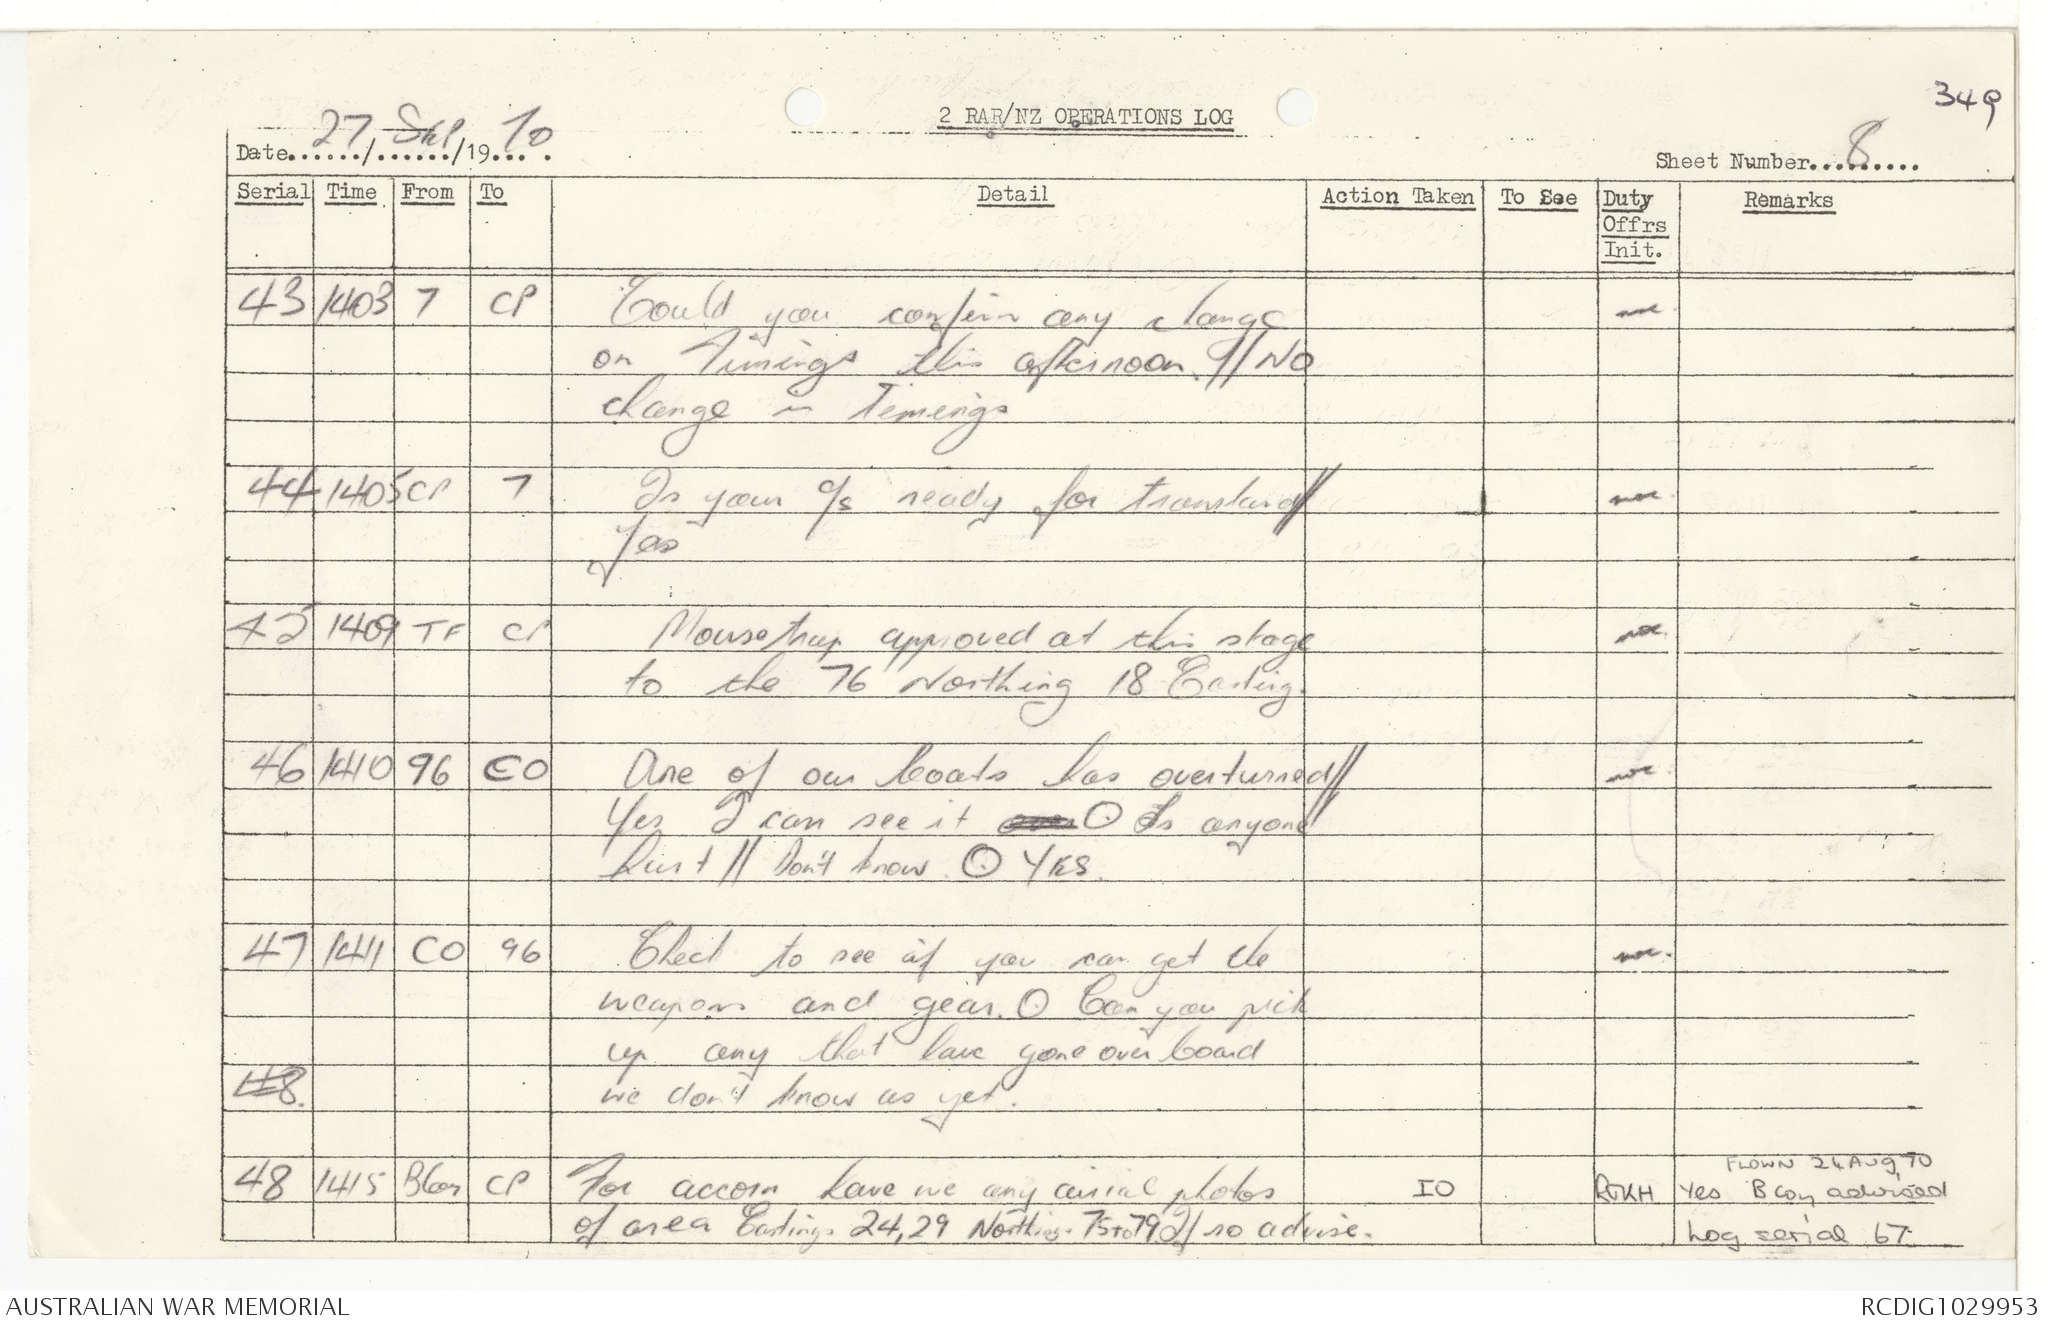 349
2 RAR/NZ OPERATIONS LOG
Date 27/Sep/1970
Sheet Number 8
Serial Time From To Detail Action Taken To See Duty Offrs Init. Remarks
43 1403 7 CP Could you confirm any change
on Timings this afternoon.// No
change in Timings
44 1405 CP 7 Is your C/S ready for //
Yes
45 1409 TF CP Mousetrap approved at this stage
to the 76 Northing 18 Easting.
46 1410 96 CO One of our boats has overturned//
Yes I can see it O Is anyone
hurt// Don't know. O YES.
47 1411 CO 96 Check to see if you can get the
weapons and gear. O Can you pick
up any that have gone over board
48. we don't know as yet.
FLOWN 24 AUG 70
48 1415 B Coy CP For accorn have we any airial photos IO RJKH Yes B Coy advised
of area Eastings 24,29 Northings 75 to 79. If so advise. Log serial 67
AUSTRALIAN WAR MEMORIAL
RCDIG1029953